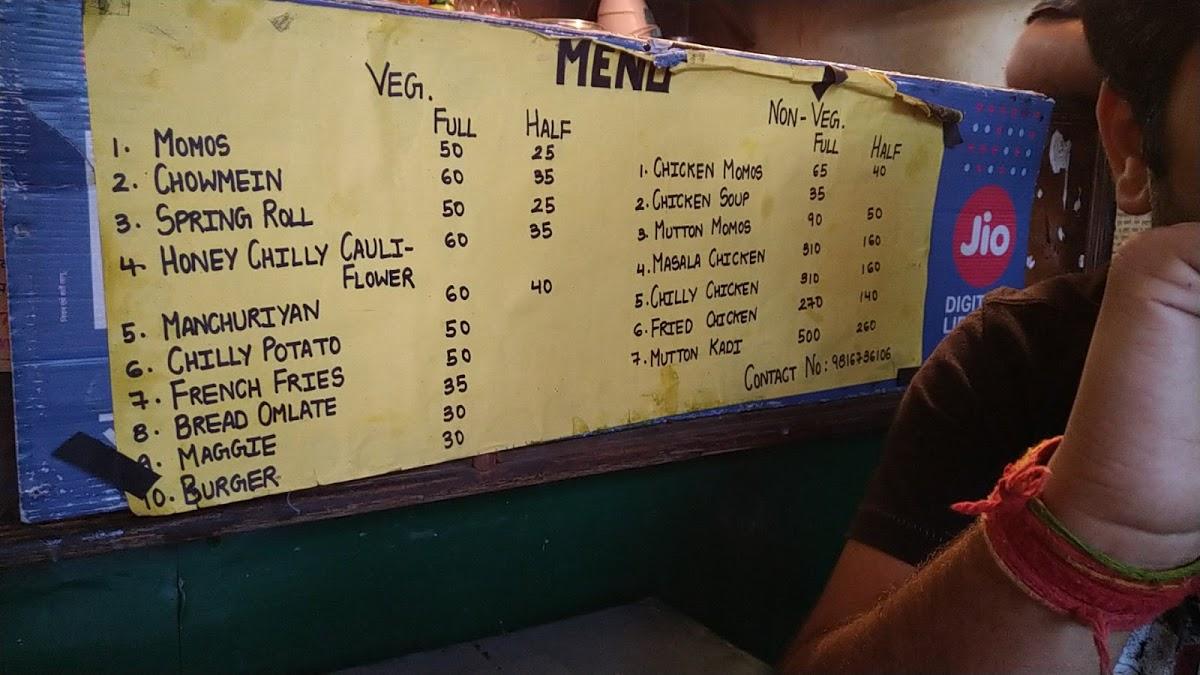 MENU
VEG.
FULL HALF
1. MOMOS 50 25
2. CHOWMEIN 60 35
3. SPRING ROLL 50 25
4. HONEY CHILLY CAULI- 60 35
FLOWER
5. MANCHURIYAN 60 40
6. CHILLY POTATO 50
7. FRENCH FRIES 50
8. BREAD OMLATE 35
9. MAGGIE 30
10. BURGER 30
NON-VEG.
FULL HALF
1. CHICKEN MOMOS 65 40
2. CHICKEN SOUP 35
3. MUTTON MOMOS 90 50
4. MASALA CHICKEN 310 160
5. CHILLY CHICKEN 310 160
6. FRIED CHICKEN 270 140
7. MUTTON KADI 500 260
CONTACT NO:
Jio